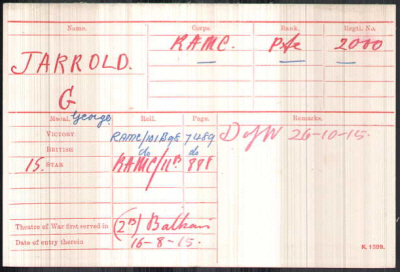 Name. Corps. Rank. Regtl. No.
JARROLD. RAMC. Pte 2000
G
George
Medal. Roll. Page. Remarks.
VICTORY RAMC/101B98 7489 D of W 26-10-15.
BRITISH do do
15. STAR RAMC/11B 888
Theatre of War first served in (2B) Balkans
Date of entry therein 16-8-15.
K. 1380.